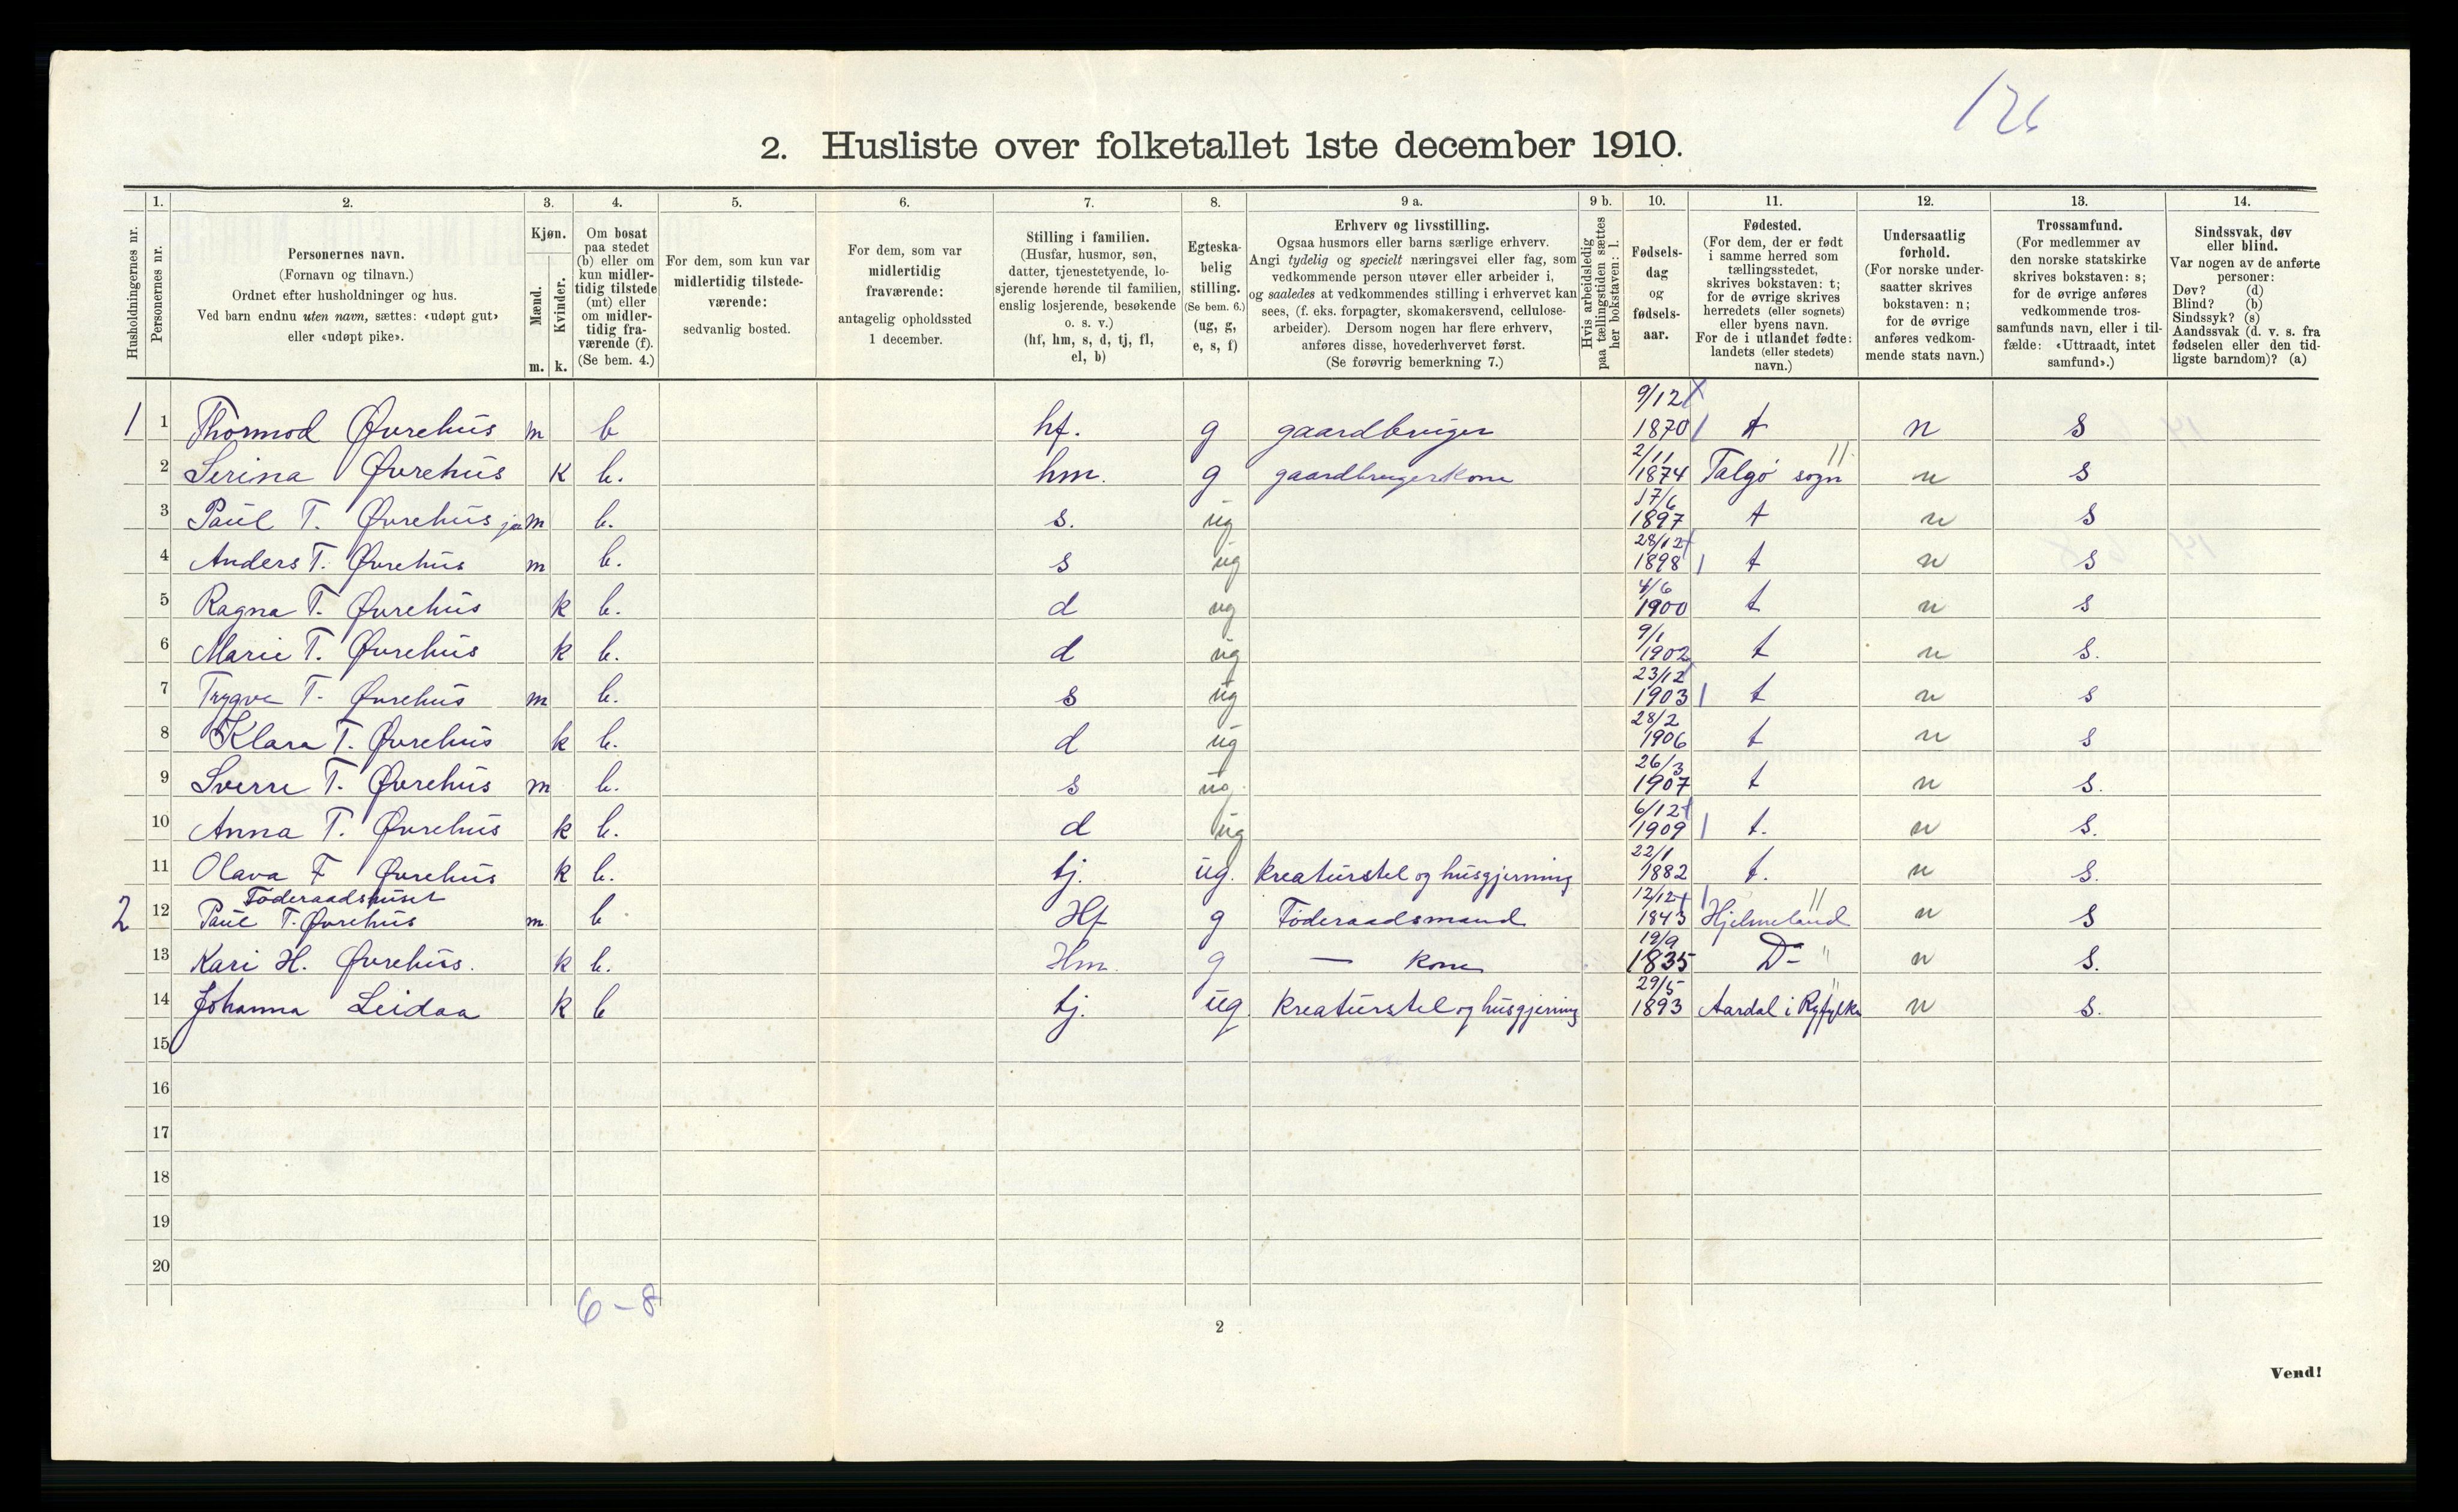 126
2. Husliste over folketallet 1ste december 1910.
Husholdningernes nr.
1.
Personernes nr.
2.
Personernes navn.
(Fornavn og tilnavn.)
Ordnet efter husholdninger og hus.
Ved barn endnu uten navn, sættes: «udøpt gut»
eller «udøpt pike».
3.
Kjøn.
Mænd.
Kvinder.
m. k.
4.
Om bosat
paa stedet
(b) eller om
kun midler-
tidig tilstede
(mt) eller
om midler-
tidig fra-
værende (f).
(Se bem. 4.)
5.
For dem, som kun var
midlertidig tilstede-
værende:
sedvanlig bosted.
6.
For dem, som var
midlertidig
fraværende:
antagelig opholdssted
1 december.
7.
Stilling i familien.
(Husfar, husmor, søn,
datter, tjenestetyende, lo-
sjerende hørende til familien,
enslig losjerende, besøkende
o. s. v.)
(hf, hm, s, d, tj, fl,
el, b)
8.
Egteska-
belig
stilling.
(Se bem. 6.)
(ug, g,
e, s, f)
9 a.
Erhverv og livsstilling.
Ogsaa husmors eller barns særlige erhverv.
Angi tydelig og specielt næringsvei eller fag, som
vedkommende person utøver eller arbeider i,
og saaledes at vedkommendes stilling i erhvervet kan
sees, (f. eks. forpagter, skomakersvend, cellulose-
arbeider). Dersom nogen har flere erhverv,
anføres disse, hovederhvervet først.
(Se forøvrig bemerkning 7.)
9 b.
Hvis arbeidsledig
paa tællingstiden sættes
her bokstaven: l.
10.
Fødsels-
dag
og
fødsels-
aar.
11.
Fødested.
(For dem, der er født
i samme herred som
tællingsstedet,
skrives bokstaven: t;
for de øvrige skrives
herredets (eller sognets)
eller byens navn.
For de i utlandet fødte:
landets (eller stedets)
navn.)
12.
Undersaatlig
forhold.
(For norske under-
saatter skrives
bokstaven: n;
for de øvrige
anføres vedkom-
mende stats navn.)
13.
Trossamfund.
(For medlemmer av
den norske statskirke
skrives bokstaven: s;
for de øvrige anføres
vedkommende tros-
samfunds navn, eller i til-
fælde: «Uttraadt, intet
samfund».)
14.
Sindssvak, døv
eller blind.
Var nogen av de anførte
personer:
Døv? (d)
Blind? (b)
Sindssyk? (s)
Aandssvak (d. v. s. fra
fødselen eller den tid-
ligste barndom)? (a)
1 1 Thormod Øvrehus m b hf. g gaardbruger 9/12 1870 t n s
2 Serina Øvrehus k b. hm. g gaardbrugerkone 2/11 1874 Talgø sogn n s
3 Paul T. Øvrehus jr m b. s. ug 17/6 1897 t n s
4 Anders T. Øvrehus m b. s ug 28/12 1898 t n s
5 Ragna T. Øvrehus k b. d ug 4/6 1900 t n s
6 Marie T. Øvrehus k b. d ug 9/1 1902 t n s.
7 Trygve T. Øvrehus m b. s ug 23/12 1903 t n s
8 Klara T. Øvrehus k b. d ug 28/2 1906 t n s
9 Sverre T. Øvrehus m b. s ug. 26/3 1907 t n s.
10 Anna T. Øvrehus k b. d ug 6/12 1909 t. n s.
11 Olava F Øvrehus k b. tj. ug. kreaturstel og husgjerning 22/1 1882 t. n s.
Føderaadshuset
2 12 Paul T. Øvrehus m b Hf g Føderaadsmand 12/12 1843 Hjelmeland n s
13 Kari H. Øvrehus. k b. Hm. g — kone 19/9 1835 Do n s.
14 Johanna Leidaa k b tj. ug. kreaturstel og husgjerning 29/5 1893 Aardal i Ryfylke n s.
15
16
17
18
19
20
6 – 8
2
Vend!